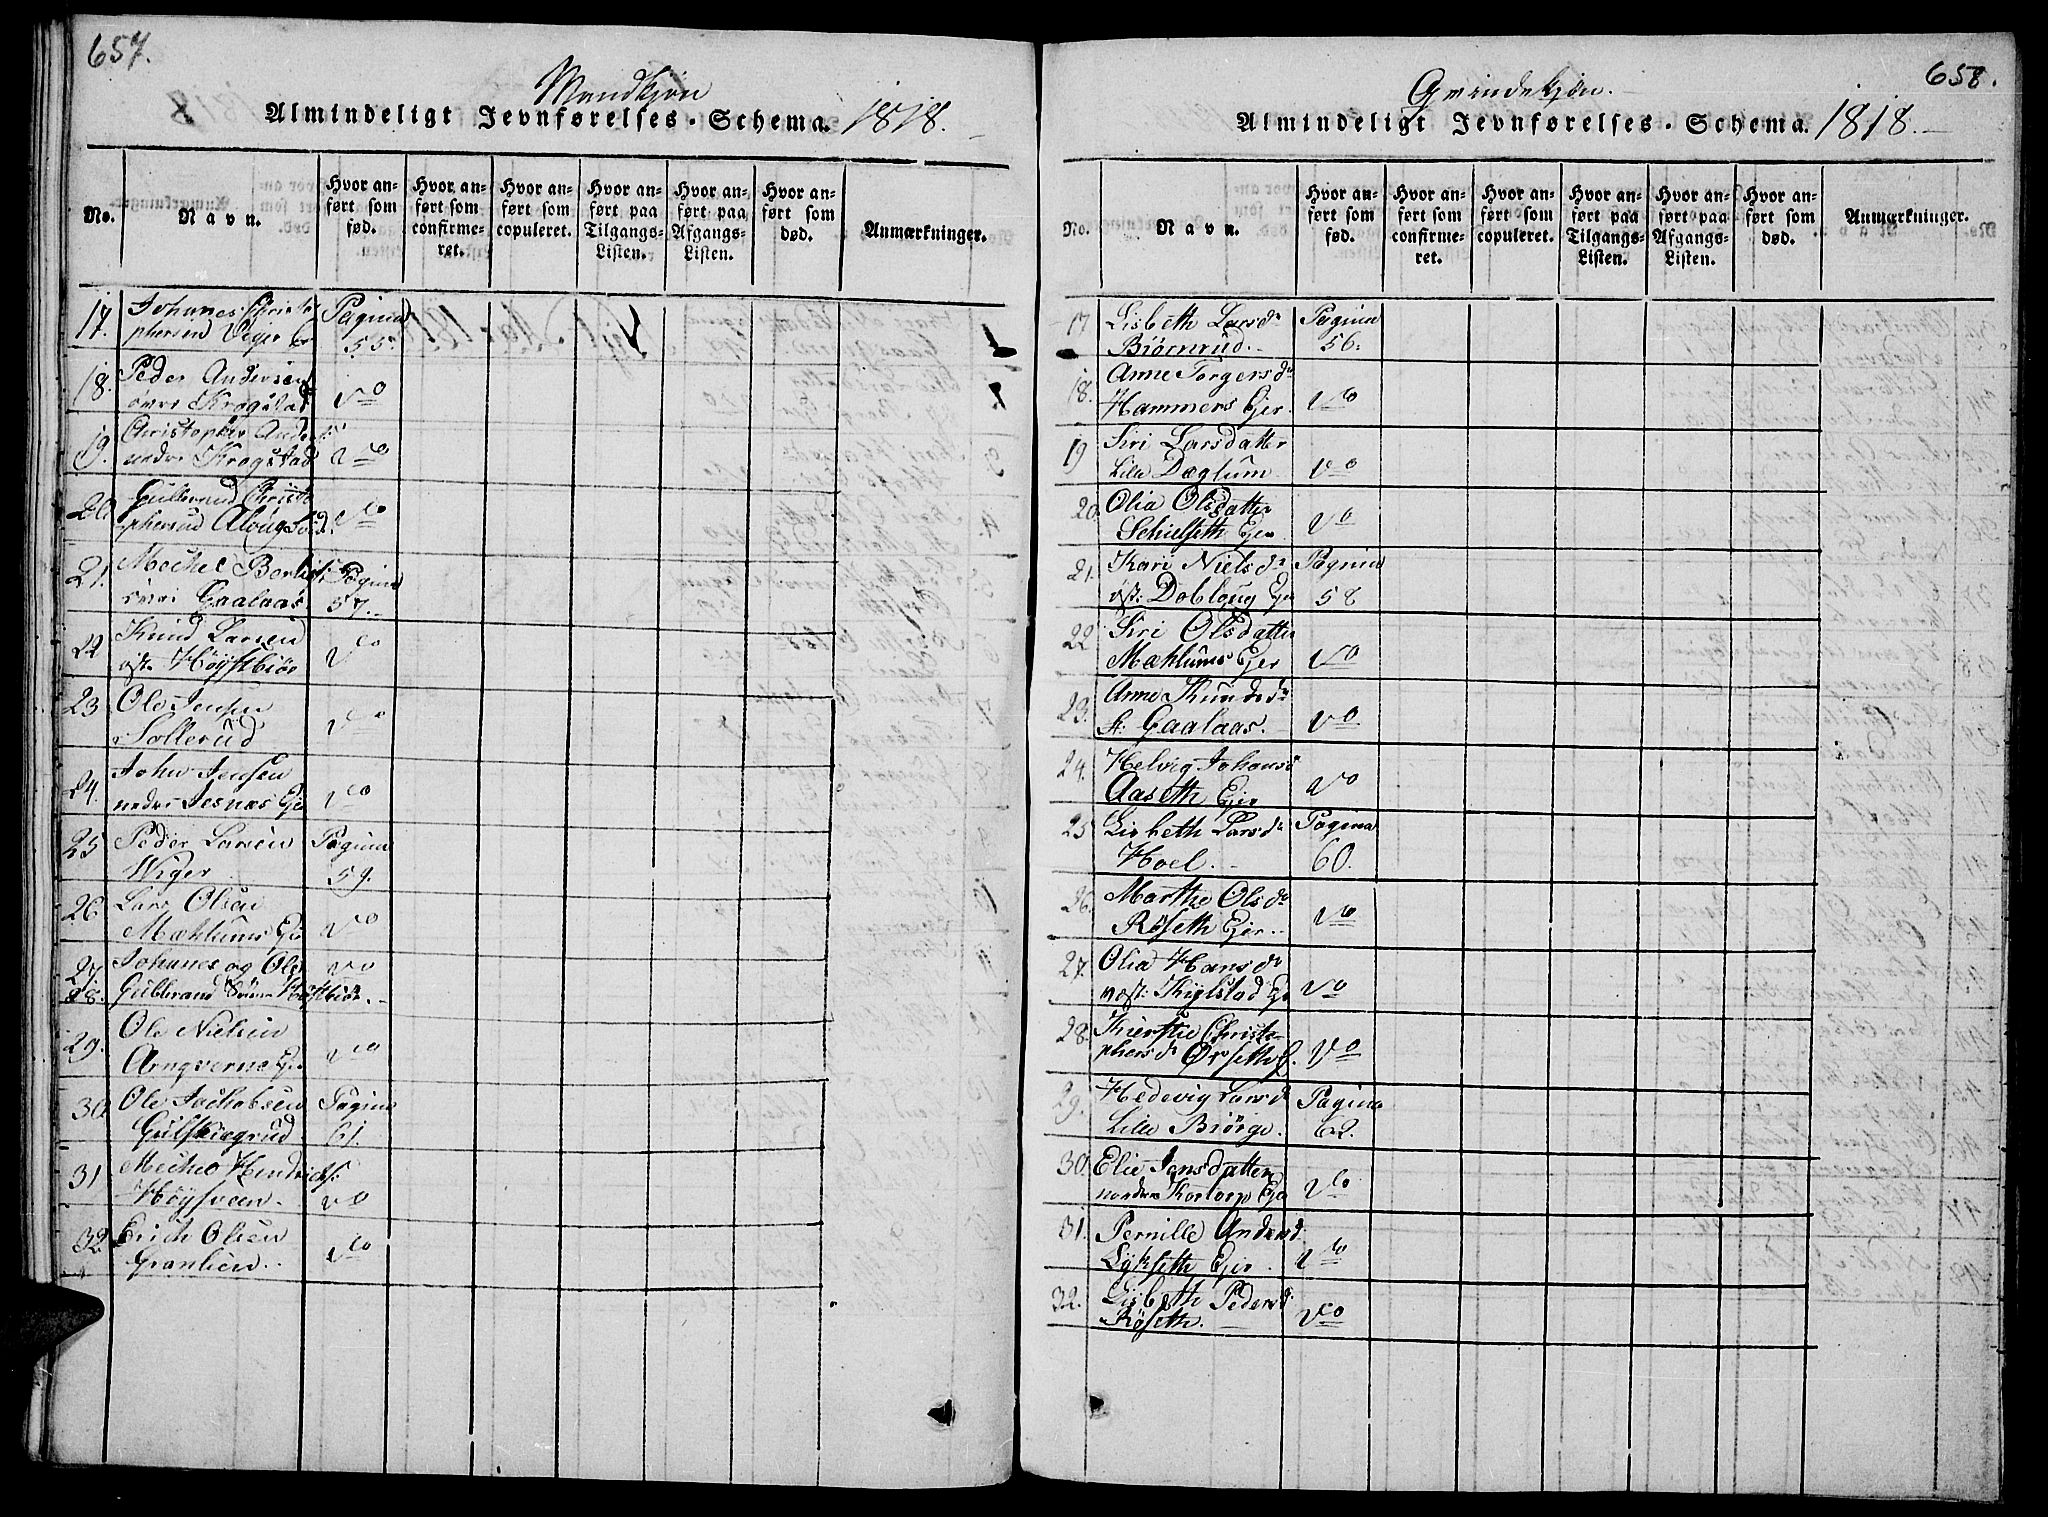 657.
Mandkjøn
Almindeligt Jevnførelses-Schema. 1818.
No.
Navn.
Hvor anført som fød.
Hvor anført som confirmeret.
Hvor anført som copuleret.
Hvor anført paa Tilgangs-Listen.
Hvor anført paa Afgangs-Listen.
Hvor anført som død.
Anmærkninger.
17. Johannes Christo Pagina
phersen Viger 55.
18. Peder Andersen
Krogstad do
19. Christopher Anders:
nedre Krogstad do
20. Gulbrand Christo
phersen do
21. Mechel Pagina
Gaalaas 57.
22 Knud Larsen
øst. Høystbiør do
23 Ole Jensen
Sollerud do
24. John Jensen
nedre Jesnæs Eje do
25 Peder Larsen Pagina
Wiger 59.
26 Lars Olsen
Mæhlums Eje do
27 Johanes og Ole do
28. Gulbrand
29. Ole Nielsen
Arnqverne Eje do
30. Ole Jachobsen Pagina
Gulskiægrud 61.
31 Mechel Hendrichs:
Høysveen. do
32. Erich Olsen
Granlien. do
658.
Qvindekjøn.
Almindeligt Jevnførelses-Schema. 1818.
No.
Navn.
Hvor anført som fød.
Hvor anført som confirmeret.
Hvor anført som copuleret.
Hvor anført paa Tilgangs-Listen.
Hvor anført paa Afgangs-Listen.
Hvor anført som død.
Anmærkninger.
17 Lisbeth Larsdr Pagina
Biørnrud. 56.
18. Anne Torgersdr
Hammers Ejer. do
19 Siri Larsdatter
Lille Dæglum do
20. Olia Olsdatter
Schielseth Ejer do
21. Kari Nielsdr Pagina
øst: Dobloug Eje 58
22 Siri Olsdatter
Mæhlums Ejer do
23. Anne Knudsdr
st: Gaalaas. do
24. Helvig Johansd
Aaseth Ejer do
25 Lisbeth Larsdr Pagina
Hoel. 60.
26. Marthe Olsdr
Røseth Ejer. do
27. Olia Hansdr
vest: Kylstad Eje do
28. Kierstie Christo-
phersdr Ørseth E. do
29. Hedevig Larsd Pagina
Lille Biørge. 62.
30. Elie Jonsdatter
nordre Kortorp Eje do
31. Pernille Andersd.
Lykseth Ejer. do
32. Lisbeth Pedersd:
Røseth. do